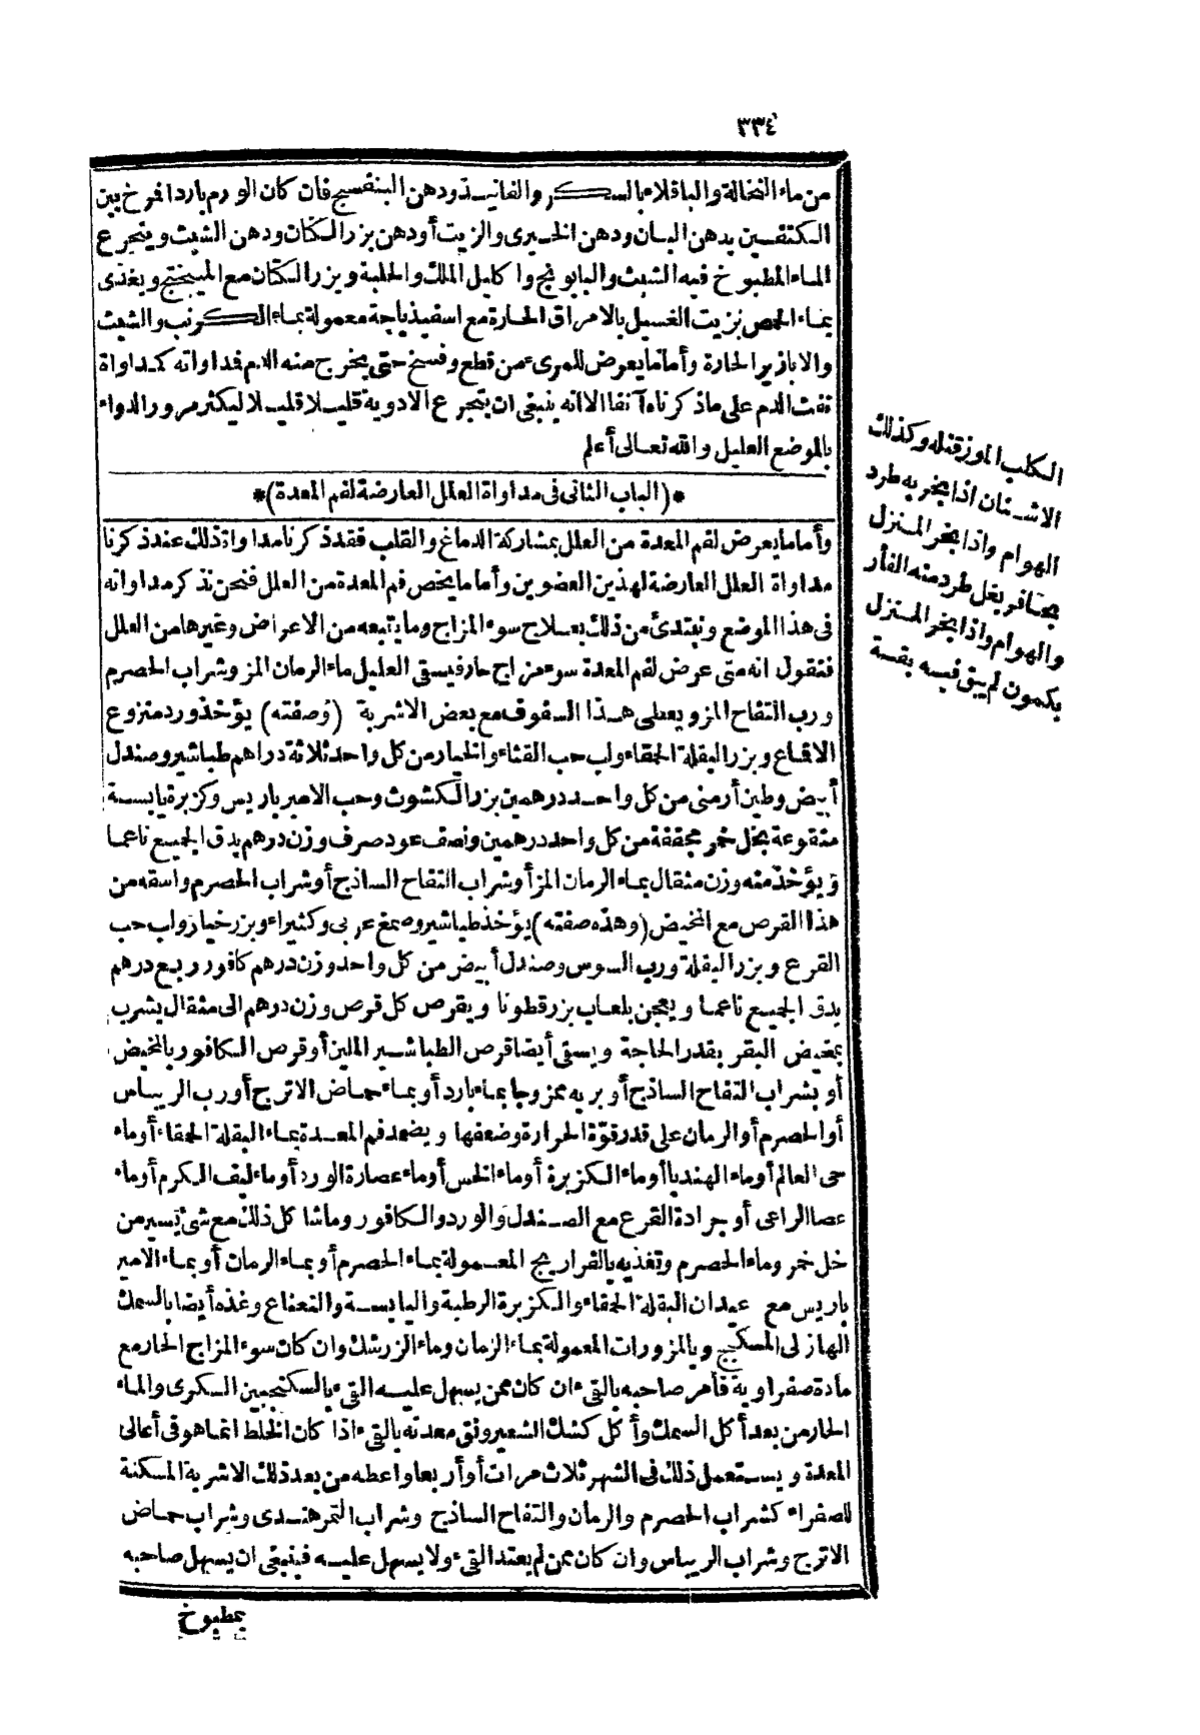 ٣٣٤
من ماء النخالة والباقلاء بالسكر والفانيذ ودهن البنفسج فان كان الورم باردا فرخ بين
الكتفين بدهن البان ودهن الخيرى والزيت أودهن بزر الكتان ودهن الشبث ويتجرع
الماء المطبوخ فيه الشبث والبابونج واكليل الملك والحلبة وبزر الكتان مع الميبختج ويغذى
بماء الحمص بزيت الغسيل بالامراق الحارة مع اسفيذباجة معمولة بماء الكرنب والشبث
والابازير الحارة وأما ما يعرض للمرىء من قطع وفسخ حتى يخرج منه الدم فداواته كمداواة
نفث الدم على ماذكرناه آنفا الا انه ينبغى ان يتجرع الادوية قليلا قليلا ليكثر مرور الدواء
بالموضع العليل والله تعالى أعلم
*(الباب الثانى فى مداواة العلل العارضة لفم المعدة)*
وأما ما يعرض لفم المعدة من العلل بمشاركة الدماغ والقلب فقد ذكرنا مداواة ذلك عند ذكرنا
مداواة العلل العارضة لهذين العضوين وأما ما يخص فم المعدة من العلل فنحن نذكر مداواته
فى هذا الموضع ونبتدئ من ذلك بعلاج سوء المزاج وما يتبعه من الاعراض وغيرها من العلل
فنقول انه متى عرض لفم المعدة سوء مزاج حار فيسقى العليل ماء الرمان المز وشراب الحصرم
ورب التفاح المز ويعطى هذا السفوف مع بعض الاشربة (وصفته) يؤخذ ورد منزوع
الاقماع وبزر البقلة الحمقاء ولب حب القثاء والخيار من كل واحد ثلاثة دراهم طباشير وصندل
أبيض وطين أرمنى من كل واحد درهمين بزر الكشوث وحب الامير باريس وكزبرة يابسة
منقوعة بخل خمر مجففة من كل واحد درهمين ونصف عود صرف وزن درهم يدق الجميع ناعما
ويؤخذ منه وزن مثقال بماء الرمان المز أوشراب التفاح الساذج أوشراب الحصرم واسقه من
هذا القرص مع المخيض (وهذه صفته) يؤخذ طباشير وصمغ عربى وكثيراء وبزر خيار ولب حب
القرع وبزر البقلة ورب السوس وصندل أبيض من كل واحد وزن درهم كافور ربع درهم
يدق الجميع ناعما ويعجن بلعاب بزرقطونا ويقرص كل قرص وزن درهم الى مثقال يشرب
بمخيض البقر بقدر الحاجة ويسقى أيضا قرص الطباشير الملين أوقرص الكافور بالمخيض
أو بشراب التفاح الساذج أو بربه ممزوجا بماء بارد أو بماء حماض الاترج أورب الريباس
أو الحصرم أو الرمان على قدر قوة الحرارة وضعفها ويضمد فم المعدة بماء البقلة الحمقاء أوماء
حى العالم أوماء الهنديا أوماء الكزبرة أوماء الخس أوماء عصارة الورد أوماء ليف الكرم أوماء
عصا الراعى أو جرادة القرع مع الصندل والورد والكافور وماشا كل ذلك مع شئ يسير من
خل خمر وماء الحصرم وتغذيه بالفراريج المعمولة بماء الحصرم أو بماء الرمان أو بماء الامير
باريس مع عيدان البقلة الحمقاء والكزبرة الرطبة واليابسة والنعناع وغذه أيضا بالسمك
الهازلى المسكبج وبالمزورات المعمولة بماء الرمان وماء الزرشك وان كان سوء المزاج الحار مع
مادة صفراوية فأمر صاحبه بالقىء ان كان ممن يسهل عليه القىء بالسكنجبين السكرى والماء
الحار من بعد أكل السمك وأكل كشك الشعير ونق معدته بالقىء اذا كان الخلط انما هو فى أعالى
المعدة ويستعمل ذلك فى الشهر ثلاث مرات أو أربعا واعطه من بعد ذلك الاشربة المسكنة
للصفراء كشراب الحصرم والرمان والتفاح الساذج وشراب التمرهندى وشراب حماض
الاترج وشراب الريباس وان كان ممن لم يعتد القىء ولا يسهل عليه فينبغى ان يسهل صاحبه
بمطبوخ
الكلب الموزقتله وكذلك
الاشنان اذا بخر به طرد
الهوام واذا بخر المنزل
بحافر بغل طرد منه الفأر
والهوام واذا بخر المنزل
بكمون لم يبق فيسه بقسة